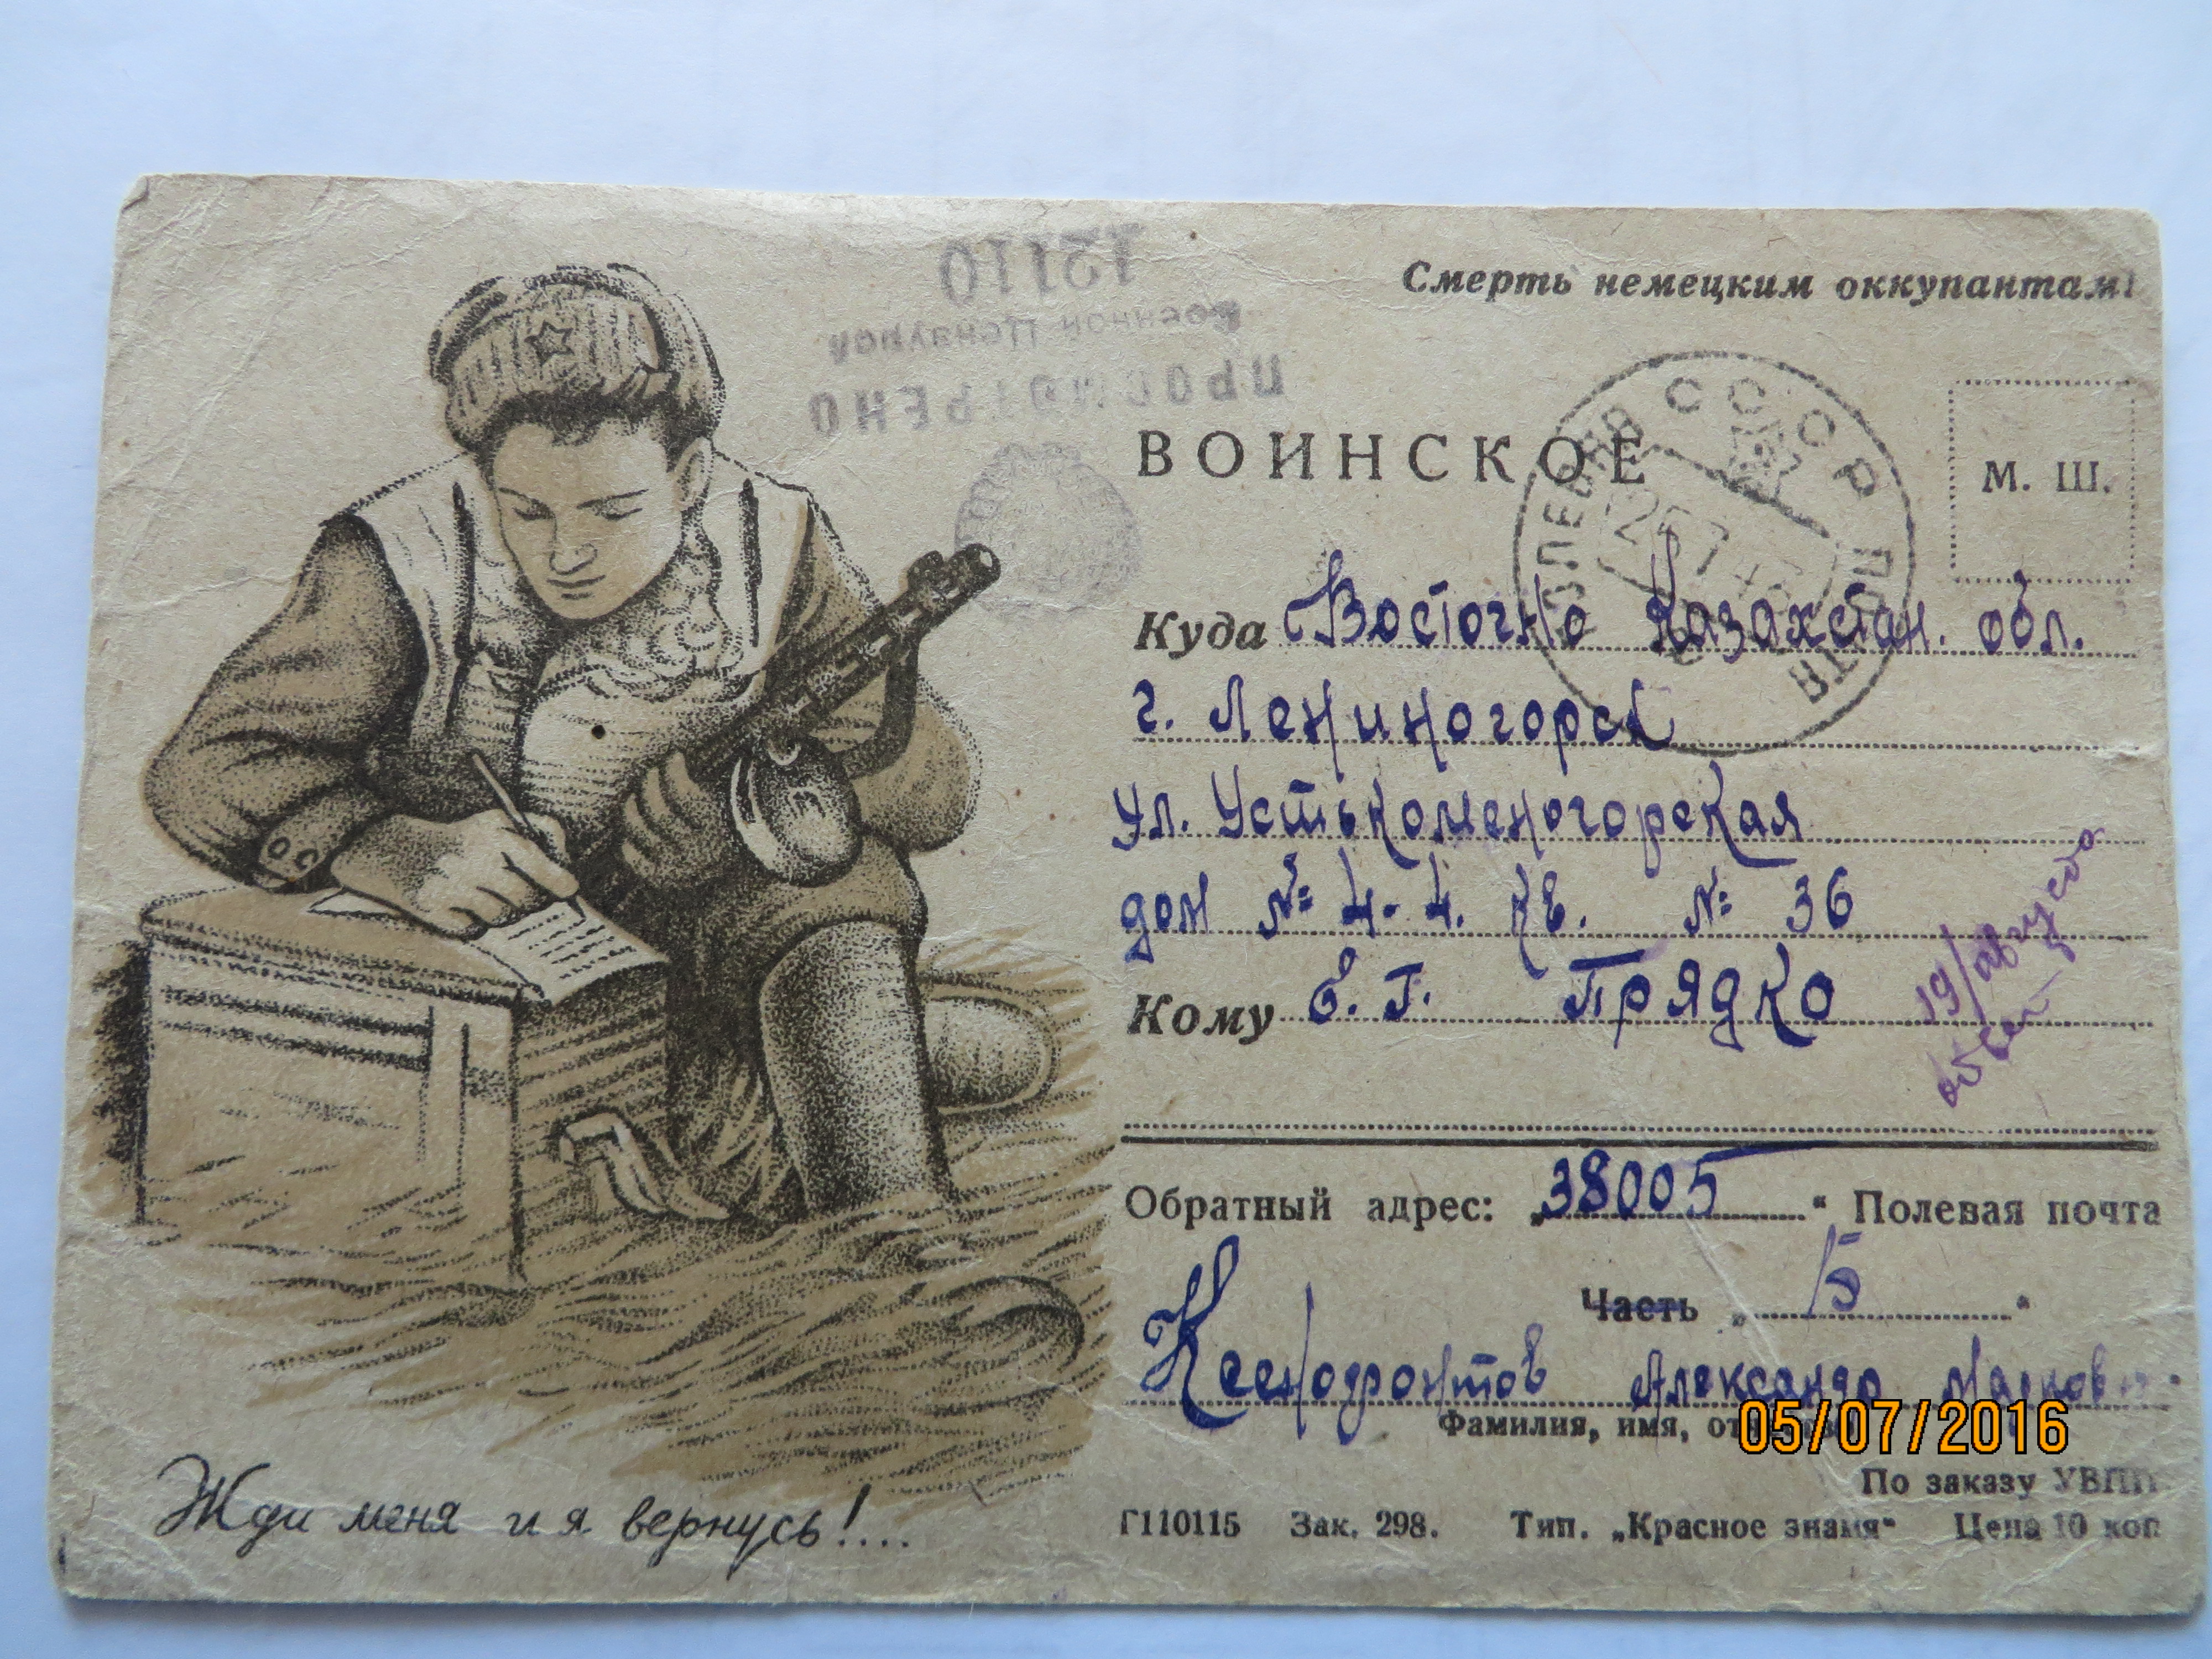 12110
Военной Цензурой
ПРОСМОТРЕНО
Смерть немецким оккупантам!
ВОИНСКОЕ
М. Ш.
СССР
ПОЧТА
Куда Восточно Казахстан. обл.
г. Лениногорск
ул. Устькоменогорская
дом № 4-4. кв. № 36
Кому Е. Г. Прядко
19/августа
Обратный адрес: „38005“ Полевая почта
Часть „Б“
Ксенофонтов Александр
Фамилия, имя,
05/07/2016
По заказу УВПП
Г110115 Зак. 298. Тип. „Красное знамя“ Цена 10 коп
Жди меня и я вернусь!....